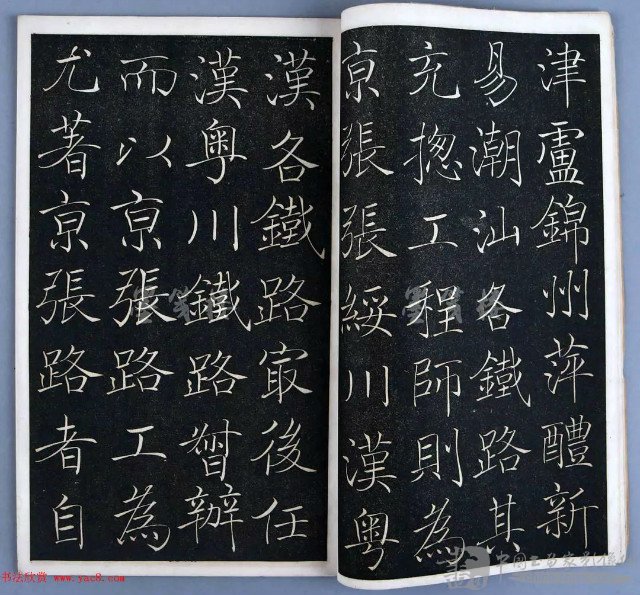 津盧錦州萍醴新
易潮汕各鐵路其
充揔工程師則為
京張張綏川漢粵
漢各鐵路㝡後任
漢粵川鐵路督辦
而以京張路工為
尤著京張路者自
书法欣赏 www.yac8.com